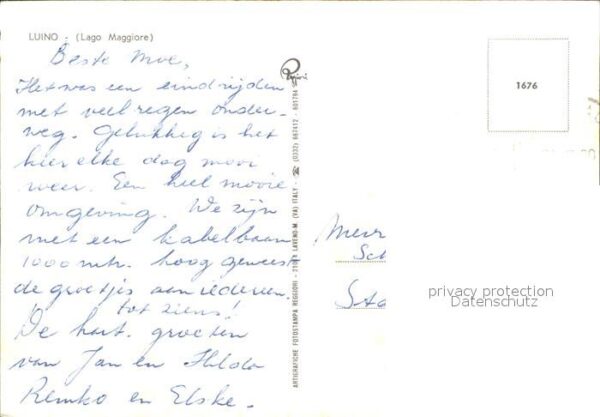 LUINO - (Lago Maggiore)
Beste Moe,
Het was een eind rijden
met veel regen onder-
weg. Gelukkig is het
hier elke dag mooi
weer. Een heel mooie
omgeving. We zijn
met een kabelbaan
1000 mtr. hoog geweest
de groetjes aan iedereen.
tot ziens!
De hart. groeten
van Jan en Hilda
Remko en Elske.
ARTIGRAFICHE FOTOSTAMPA REGGIORI - 21014 LAVENO-M. (VA) ITALY - ☎ (0332) 667412 - 601784
1676
Mevr
Sch
Sta
privacy protection
Datenschutz